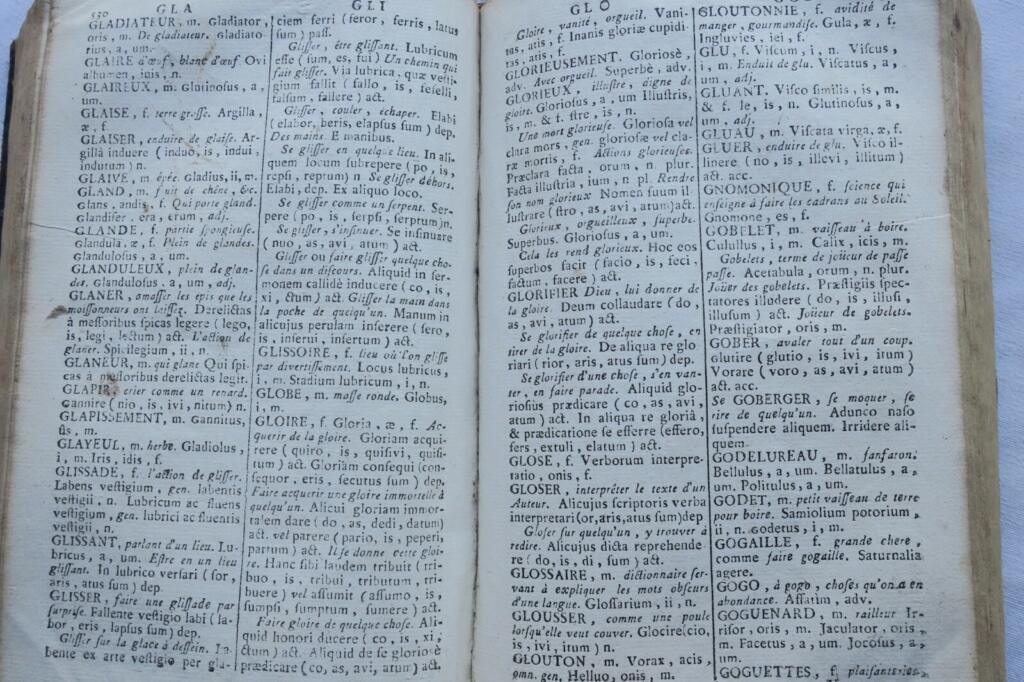 530
GLA
GLADIATEUR, m. Gladiator,
oris, m. De gladiateur. Gladiato
rius, a, um.
GLAIRE d'œuf, blanc d'œuf Ovi
albumen, inis, n.
GLAIREUX, m. Glutinosus, a,
um.
GLAISE, f. terre grosse. Argilla,
æ, f.
GLAISER, enduire de glaise. Ar-
gillâ induere (induo, is, indui,
indutum) n.
GLAIVE, m. épée. Gladius, ii, m.
GLAND, m. fruit de chêne, &c.
Glans, andis, f. Qui porte gland.
Glandifer, era, erum, adj.
GLANDE, f. partie spongieuse.
Glandula, æ, f. Plein de glandes.
Glandulosus, a, um.
GLANDULEUX, plein de glan-
des. Glandulosus, a, um, adj.
GLANER, amasser les épis que les
moissonneurs ont laissez. Derelictas
à messoribus spicas legere (lego,
is, legi, lectum) act. L'action de
glaner. Spicilegium, ii, n.
GLANEUR, m. qui glane Qui spi-
cas à messoribus derelictas legit.
GLAPIR, crier comme un renard.
Gannire (nio, is, ivi, nitum) n.
GLAPISSEMENT, m. Gannitus,
ûs, m.
GLAYEUL, m. herbe. Gladiolus,
i, m. Iris, idis, f.
GLISSADE, f. l'action de glisser.
Labens vestigium, gen. labentis
vestigii, n. Lubricum ac fluens
vestigium, gen. lubrici ac fluentis
vestigii, n.
GLISSANT, parlant d'un lieu. Lu-
bricus, a, um. Estre en un lieu
glissant. In lubrico versari (sor,
aris, atus sum) dep.
GLISSER, faire une glissade par
surprise. Fallente vestigio labi (la-
bor, eris, lapsus sum) dep.
Glisser sur la glace à dessein. La-
bente ex arte vestigio per gla-
GLI
ciem ferri (feror, ferris, latus
sum) pass.
Glisser, être glissant. Lubricum
esse (sum, es, fui) Un chemin qui
fait glisser. Via lubrica, quæ vesti-
gium fallit (fallo, is, fefelli,
falsum, fallere) act.
Glisser, couler, echaper. Elabi
(elabor, beris, elapsus sum) dep.
Des mains. E manibus.
Se glisser en quelque lieu. In ali-
quem locum subrepere (po, is,
repsi, reptum) n Se glisser dehors.
Elabi, dep. Ex aliquo loco.
Se glisser comme un serpent. Ser-
pere (po, is, serpsi, serptum)n.
Se glisser, s'insinuer. Se insinuare
(nuo, as, avi, atum) act.
Glisser ou faire glisser quelque cho-
se dans un discours. Aliquid in ser-
monem callidè inducere (co, is,
xi, ctum) act. Glisser la main dans
la poche de quelqu'un. Manum in
alicujus perulam inserere (sero,
is, inserui, insertum) act.
GLISSOIRE, f. lieu où l'on glisse
par divertissement. Locus lubricus,
i, m. Stadium lubricum, i, n.
GLOBE, m. masse ronde. Globus,
i, m.
GLOIRE, f. Gloria, æ, f. Ac-
querir de la gloire. Gloriam acqui-
rere (quiro, is, quisivi, quisi-
tum) act. Gloriam consequi (con-
sequor, eris, secutus sum) dep.
Faire acquerir une gloire immortelle à
quelqu'un. Alicui gloriam immor-
talem dare (do, as, dedi, datum)
act. vel parere (pario, is, peperi,
partum) act. Il se donne cette gloi-
re. Hanc sibi laudem tribuit (tri-
buo, is, tribui, tributum, tri-
buere) vel assumit (assumo, is,
sumpsi, sumptum, sumere) act.
Faire gloire de quelque chose. Ali-
quid honori ducere (co, is, xi,
ctum) act. Aliquid de se gloriosè
prædicare (co, as, avi, atum) act.
GLO
Gloire, vanité, orgueil. Vani-
tas, atis, f. Inanis gloriæ cupidi-
tas, atis, f.
GLORIEUSEMENT. Gloriosè,
adv. Avec orgueil. Superbè, adv.
GLORIEUX, illustre, digne de
gloire. Gloriosus, a, um Illustris,
is, m. & f. stre, is, n.
Une mort glorieuse. Gloriosa vel
clara mors, gen. gloriosæ vel cla-
ræ mortis, f. Actions glorieuses.
Præclara facta, orum, n. plur.
Facta illustria, ium, n. pl. Rendre
son nom glorieux Nomen suum il-
lustrare (stro, as, avi, atum)act.
Glorieux, orgueilleux, superbe.
Superbus. Gloriosus, a, um.
Cela les rend glorieux. Hoc eos
superbos facit (facio, is, feci,
factum, facere) act.
GLORIFIER Dieu, lui donner de
la gloire. Deum collaudare (do,
as, avi, atum) act.
Se glorifier de quelque chose, en
tirer de la gloire. De aliqua re glo
riari (rior, aris, atus sum) dep.
Se glorifier d'une chose, s'en van-
ter, en faire parade. Aliquid glo-
riosius prædicare (co, as, avi,
atum) act. In aliqua re gloriâ
& prædicatione se efferre (effero,
fers, extuli, elatum) act.
GLOSE, f. Verborum interpre-
tatio, onis, f.
GLOSER, interpréter le texte d'un
Auteur. Alicujus scriptoris verba
interpretari(or,aris,atus sum)dep
Gloser sur quelqu'un, y trouver à
redire. Alicujus dicta reprehende-
re (do, is, di, sum) act.
GLOSSAIRE, m. dictionnaire ser-
vant à expliquer les mots obscurs
d'une langue. Glossarium, ii, n.
GLOUSSER, comme une poule
lorsqu'elle veut couver. Glocire(cio,
is, ivi, itum) n.
GLOUTON, m. Vorax, acis,
omn. gen. Helluo, onis, m.
GOU
GLOUTONNIE, f. avidité de
manger, gourmandise. Gula, æ, f.
Ingluvies, iei, f.
GLU, f. Viscum, i, n. Viscus,
i, m. Enduit de glu. Viscatus, a,
um, adj.
GLUANT. Visco similis, is, m.
& f. le, is, n. Glutinosus, a,
um, adj.
GLUAU, m. Viscata virga, æ, f.
GLUER, enduire de glu. Visco il-
linere (no, is, illevi, illitum)
act. acc.
GNOMONIQUE, f. science qui
enseigne à faire les cadrans au Soleil.
Gnomone, es, f.
GOBELET, m. vaisseau à boire.
Culullus, i, m. Calix, icis, m.
Gobelets, terme de joüeur de passe
passe. Acetabula, orum, n. plur.
Joüer des gobelets. Præstigiis spec-
tatores illudere (do, is, illusi,
illusum) act. Joüeur de gobelets.
Præstigiator, oris, m.
GOBER, avaler tout d'un coup.
Glutire (glutio, is, ivi, itum)
Vorare (voro, as, avi, atum)
act. acc.
Se GOBERGER, se moquer, se
rire de quelqu'un. Adunco naso
suspendere aliquem. Irridere ali-
quem.
GODELUREAU, m. fanfaron.
Bellulus, a, um. Bellatulus, a,
um. Politulus, a, um.
GODET, m. petit vaisseau de terre
pour boire. Samiolium potorium,
ii, n. godetus, i, m.
GOGAILLE, f. grande chere,
comme faire gogaille. Saturnalia
agere.
GOGO, à gogo, choses qu'on a en
abondance. Affatim, adv.
GOGUENARD, m. railleur Ir-
risor, oris, m. Jaculator, oris,
m. Facetus, a, um. Jocosus, a,
um.
GOGUETTES, f. plaisanteries.